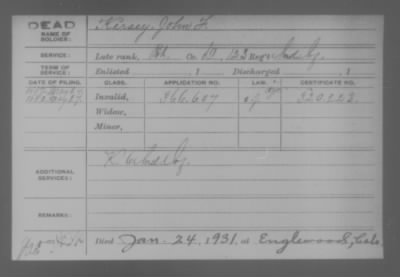 DEAD
NAME OF SOLDIER:
Kirsey, John F.
SERVICE:
Late rank, Co. D, 123 Reg't Ind. Inf.
TERM OF SERVICE:
Enlisted , 1 Discharged , 1
DATE OF FILING. CLASS. APPLICATION NO. LAW. CERTIFICATE NO.
Invalid, 366.607 320.223
Widow,
Minor,
ADDITIONAL SERVICES:
K.
REMARKS:
Died Jan. 24, 1931, at Englewood, Colo.